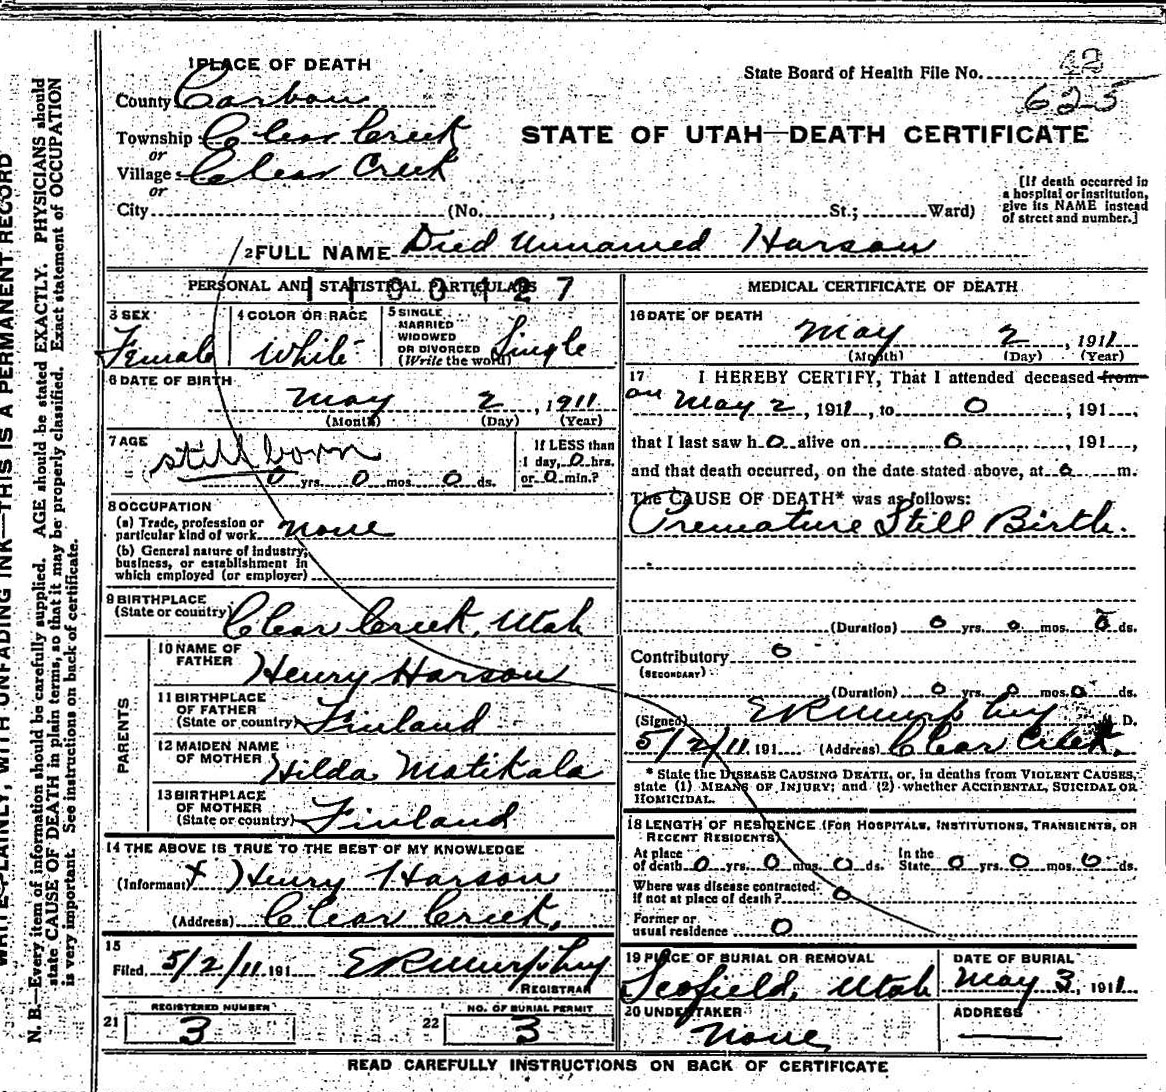 WRITE PLAINLY, WITH UNFADING INK—THIS IS A PERMANENT RECORD
N. B.—Every item of information should be carefully supplied. AGE should be stated EXACTLY. PHYSICIANS should
state CAUSE OF DEATH in plain terms, so that it may be properly classified. Exact statement of OCCUPATION
is very important. See instructions on back of certificate.
1 PLACE OF DEATH
State Board of Health File No. 42
625
County Carbon
Township Clear Creek
or
STATE OF UTAH—DEATH CERTIFICATE
Village Clear Creek
or
City (No. , St.; Ward)
[If death occurred in
a hospital or institution,
give its NAME instead
of street and number.]
2 FULL NAME Died Unnamed Harson
PERSONAL AND STATISTICAL PARTICULARS
1100427
3 SEX Female
4 COLOR OR RACE White
5 SINGLE MARRIED WIDOWED OR DIVORCED (Write the word) Single
6 DATE OF BIRTH
May 2, 1911
(Month) (Day) (Year)
7 AGE still born
0 yrs. 0 mos. 0 ds.
If LESS than
1 day, 0 hrs.
or 0 min.?
8 OCCUPATION
(a) Trade, profession or
particular kind of work none
(b) General nature of industry,
business, or establishment in
which employed (or employer)
9 BIRTHPLACE
(State or country) Clear Creek, Utah
PARENTS
10 NAME OF
FATHER Henry Harson
11 BIRTHPLACE
OF FATHER
(State or country) Finland
12 MAIDEN NAME
OF MOTHER Hilda Matikala
13 BIRTHPLACE
OF MOTHER
(State or country) Finland
14 THE ABOVE IS TRUE TO THE BEST OF MY KNOWLEDGE
(Informant) + Henry Harson
(Address) Clear Creek,
15
Filed 5/2/11 191 E R Murphey
REGISTRAR
REGISTERED NUMBER
21 3
NO. OF BURIAL PERMIT
22 3
MEDICAL CERTIFICATE OF DEATH
16 DATE OF DEATH
May 2, 1911
(Month) (Day) (Year)
17 I HEREBY CERTIFY, That I attended deceased from
on May 2, 1911, to 0, 191 ,
that I last saw h 0 alive on 0, 191 ,
and that death occurred, on the date stated above, at 0 m.
The CAUSE OF DEATH* was as follows:
Premature Still Birth.
(Duration) 0 yrs. 0 mos. 0 ds.
Contributory 0
(SECONDARY)
(Duration) 0 yrs. 0 mos. 0 ds.
(Signed) E R Murphey M. D.
5/2/11 191 (Address) Clear Creek.
* State the DISEASE CAUSING DEATH, or, in deaths from VIOLENT CAUSES,
state (1) MEANS OF INJURY; and (2) whether ACCIDENTAL, SUICIDAL OR
HOMICIDAL.
18 LENGTH OF RESIDENCE (FOR HOSPITALS, INSTITUTIONS, TRANSIENTS, OR
RECENT RESIDENTS)
At place
of death 0 yrs. 0 mos. 0 ds.
In the
State 0 yrs. 0 mos. 0 ds.
Where was disease contracted,
if not at place of death? 0
Former or
usual residence 0
19 PLACE OF BURIAL OR REMOVAL
Scofield, Utah
DATE OF BURIAL
May 3, 1911
20 UNDERTAKER
None
ADDRESS
READ CAREFULLY INSTRUCTIONS ON BACK OF CERTIFICATE